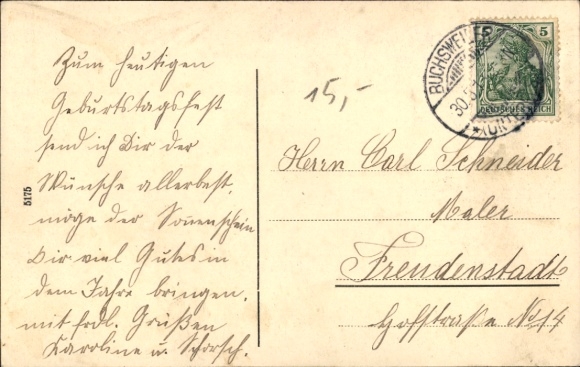 Zum heutigen
Geburtstagsfest
send ich Dir der
Wünsche allerbest,
möge der Sonnenschein
Dir viel Gutes in
dem Jahre bringen,
mit frdl. Grüßen
Karoline u. Schorsch.
5175
15,-
5
DEUTSCHES REICH
BUCHSWEILER
30.
Herrn Carl Schneider
Maler
Freudenstadt
Hofstraße No 14